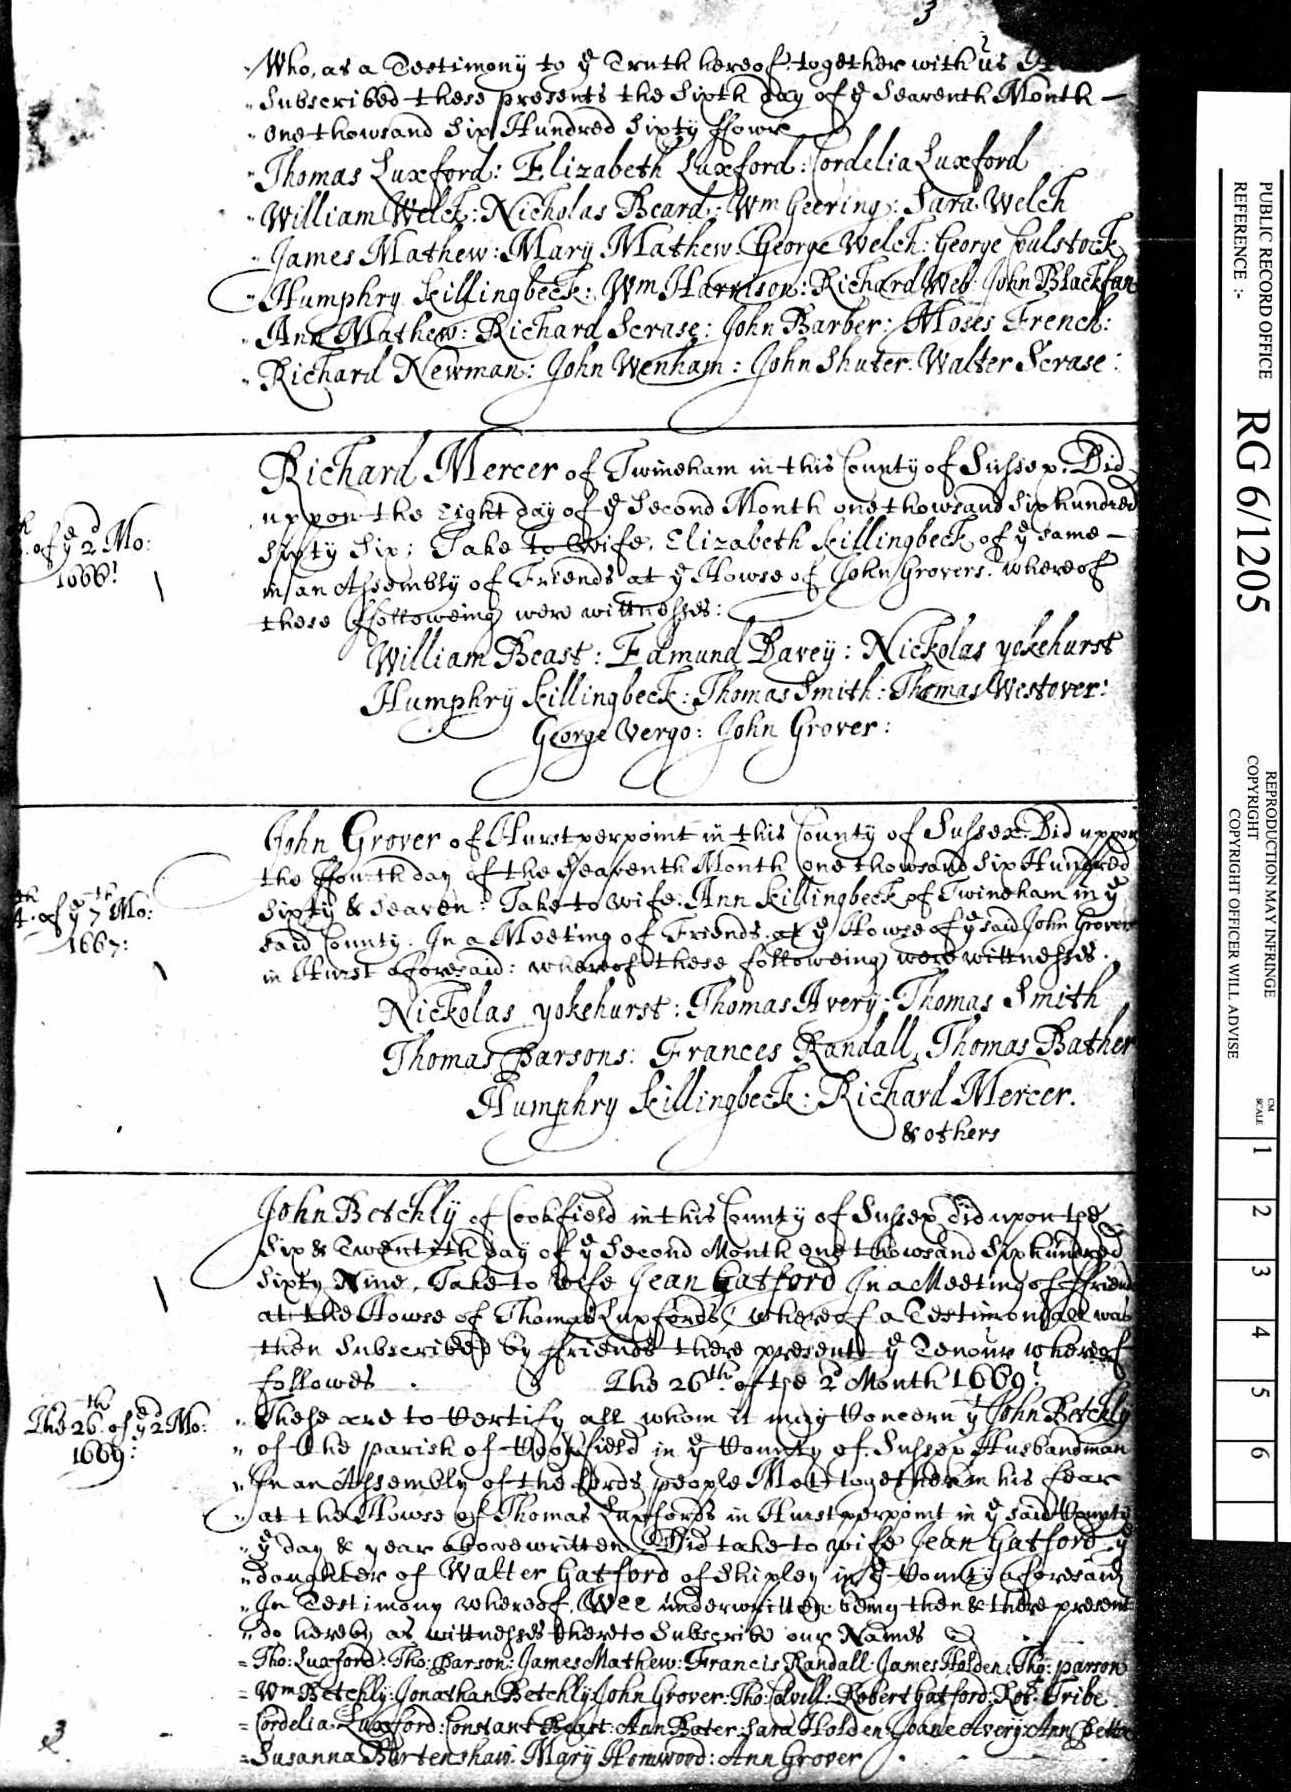 3
Who, as a Testimony to ye Truth hereof together with us
Subscribed these presents the Sixth day of ye Seaventh Month –
one thowsand Six Hundred Sixty ffowr
Thomas Luxford: Elizabeth Luxford: Cordelia Luxford
William Welch: Nicholas Beard: Wm Geering: Sara Welch
James Mathew: Mary Mathew: George Welch: George Coulstock
Humphry Killingbeck: Wm Harrison: Richard Web: John Blackfan
Ann Mathew: Richard Scrase: John Barber: Moses French:
Richard Newman: John Wenham: John Shuter: Walter Scrase:
Richard Mercer of Twineham in this County of Sussex. Did
uppon the Eight day of ye Second Month one thowsand Six hundred
of ye 2d Mo:
1666
Sixty Six; Take to Wife, Elizabeth Killingbeck of ye same –
in an Assembly of Friends at ye Howse of John Grovers. whereof
these ffolloweing were wittnesses:
William Beast: Edmund Davey: Nickolas yokehurst
Humphry Killingbeck: Thomas Smith: Thomas Westover:
George Vergo: John Grover:
John Grover of Hurstperpoint in this County of Sussex. Did uppon
the ffourth day of the Seaventh Month one thowsand Six Hundred
4th of ye 7th Mo:
1667:
Sixty & Seaven: Take to wife, Ann Killingbeck of Twineham in ye
said County. In a Meeting of Friends at ye Howse of ye said John Grover
in Hurst aforesaid: whereof these followeing were wittnesses.
Nickolas yokehurst: Thomas Avery: Thomas Smith
Thomas Parsons: Frances Randall, Thomas Bather
Humphry Killingbeck: Richard Mercer.
& others
John Betchly of Cookfield in this County of Sussex Did upon the
Six & Twentith day of ye Second Month one thowsand Six hundred
Sixty Nine, Take to Wife Jean Gatford In a Meeting of ffriends
at the Howse of Thomas Luxfords, whereof a Testimoniall was
then Subscribed by ffriends there present ye Tenour whereof
followes. The 26th of the 2d Month 1669
The 26th of ye 2d Mo:
1669:
These are to Certify all whom it may Concern yt John Betchly
of the parish of Cookfield in ye County of Sussex Husbandman
In an Assembly of the Lords people Met together in his fear
at the Howse of Thomas Luxfords in Hurstperpoint in ye said County
ye day & year abovewritten Did take to wife Jean Gatford ye
daughter of Walter Gatford of Shipley in ye County aforesaid
In Testimony whereof, Wee underwritten being then & there present
do hereby as wittnesses thereto Subscribe our Names
Tho: Luxford: Tho: Parson: James Mathew: Francis Randall: James Holden: Tho: parson
Wm Betchly: Jonathan Betchly: John Grover: Tho: Colvill: Robert Gatford: Rot: Tribe
Cordelia Luxford: Constant Beast: Ann Bater: Sara Holden: Joane Avery: Ann
Susanna Burtenshaw: Mary Homwood: Ann Grover
3
PUBLIC RECORD OFFICE
REFERENCE :-
RG 6/1205
REPRODUCTION MAY INFRINGE
COPYRIGHT
COPYRIGHT OFFICER WILL ADVISE
CM
SCALE
1
2
3
4
5
6